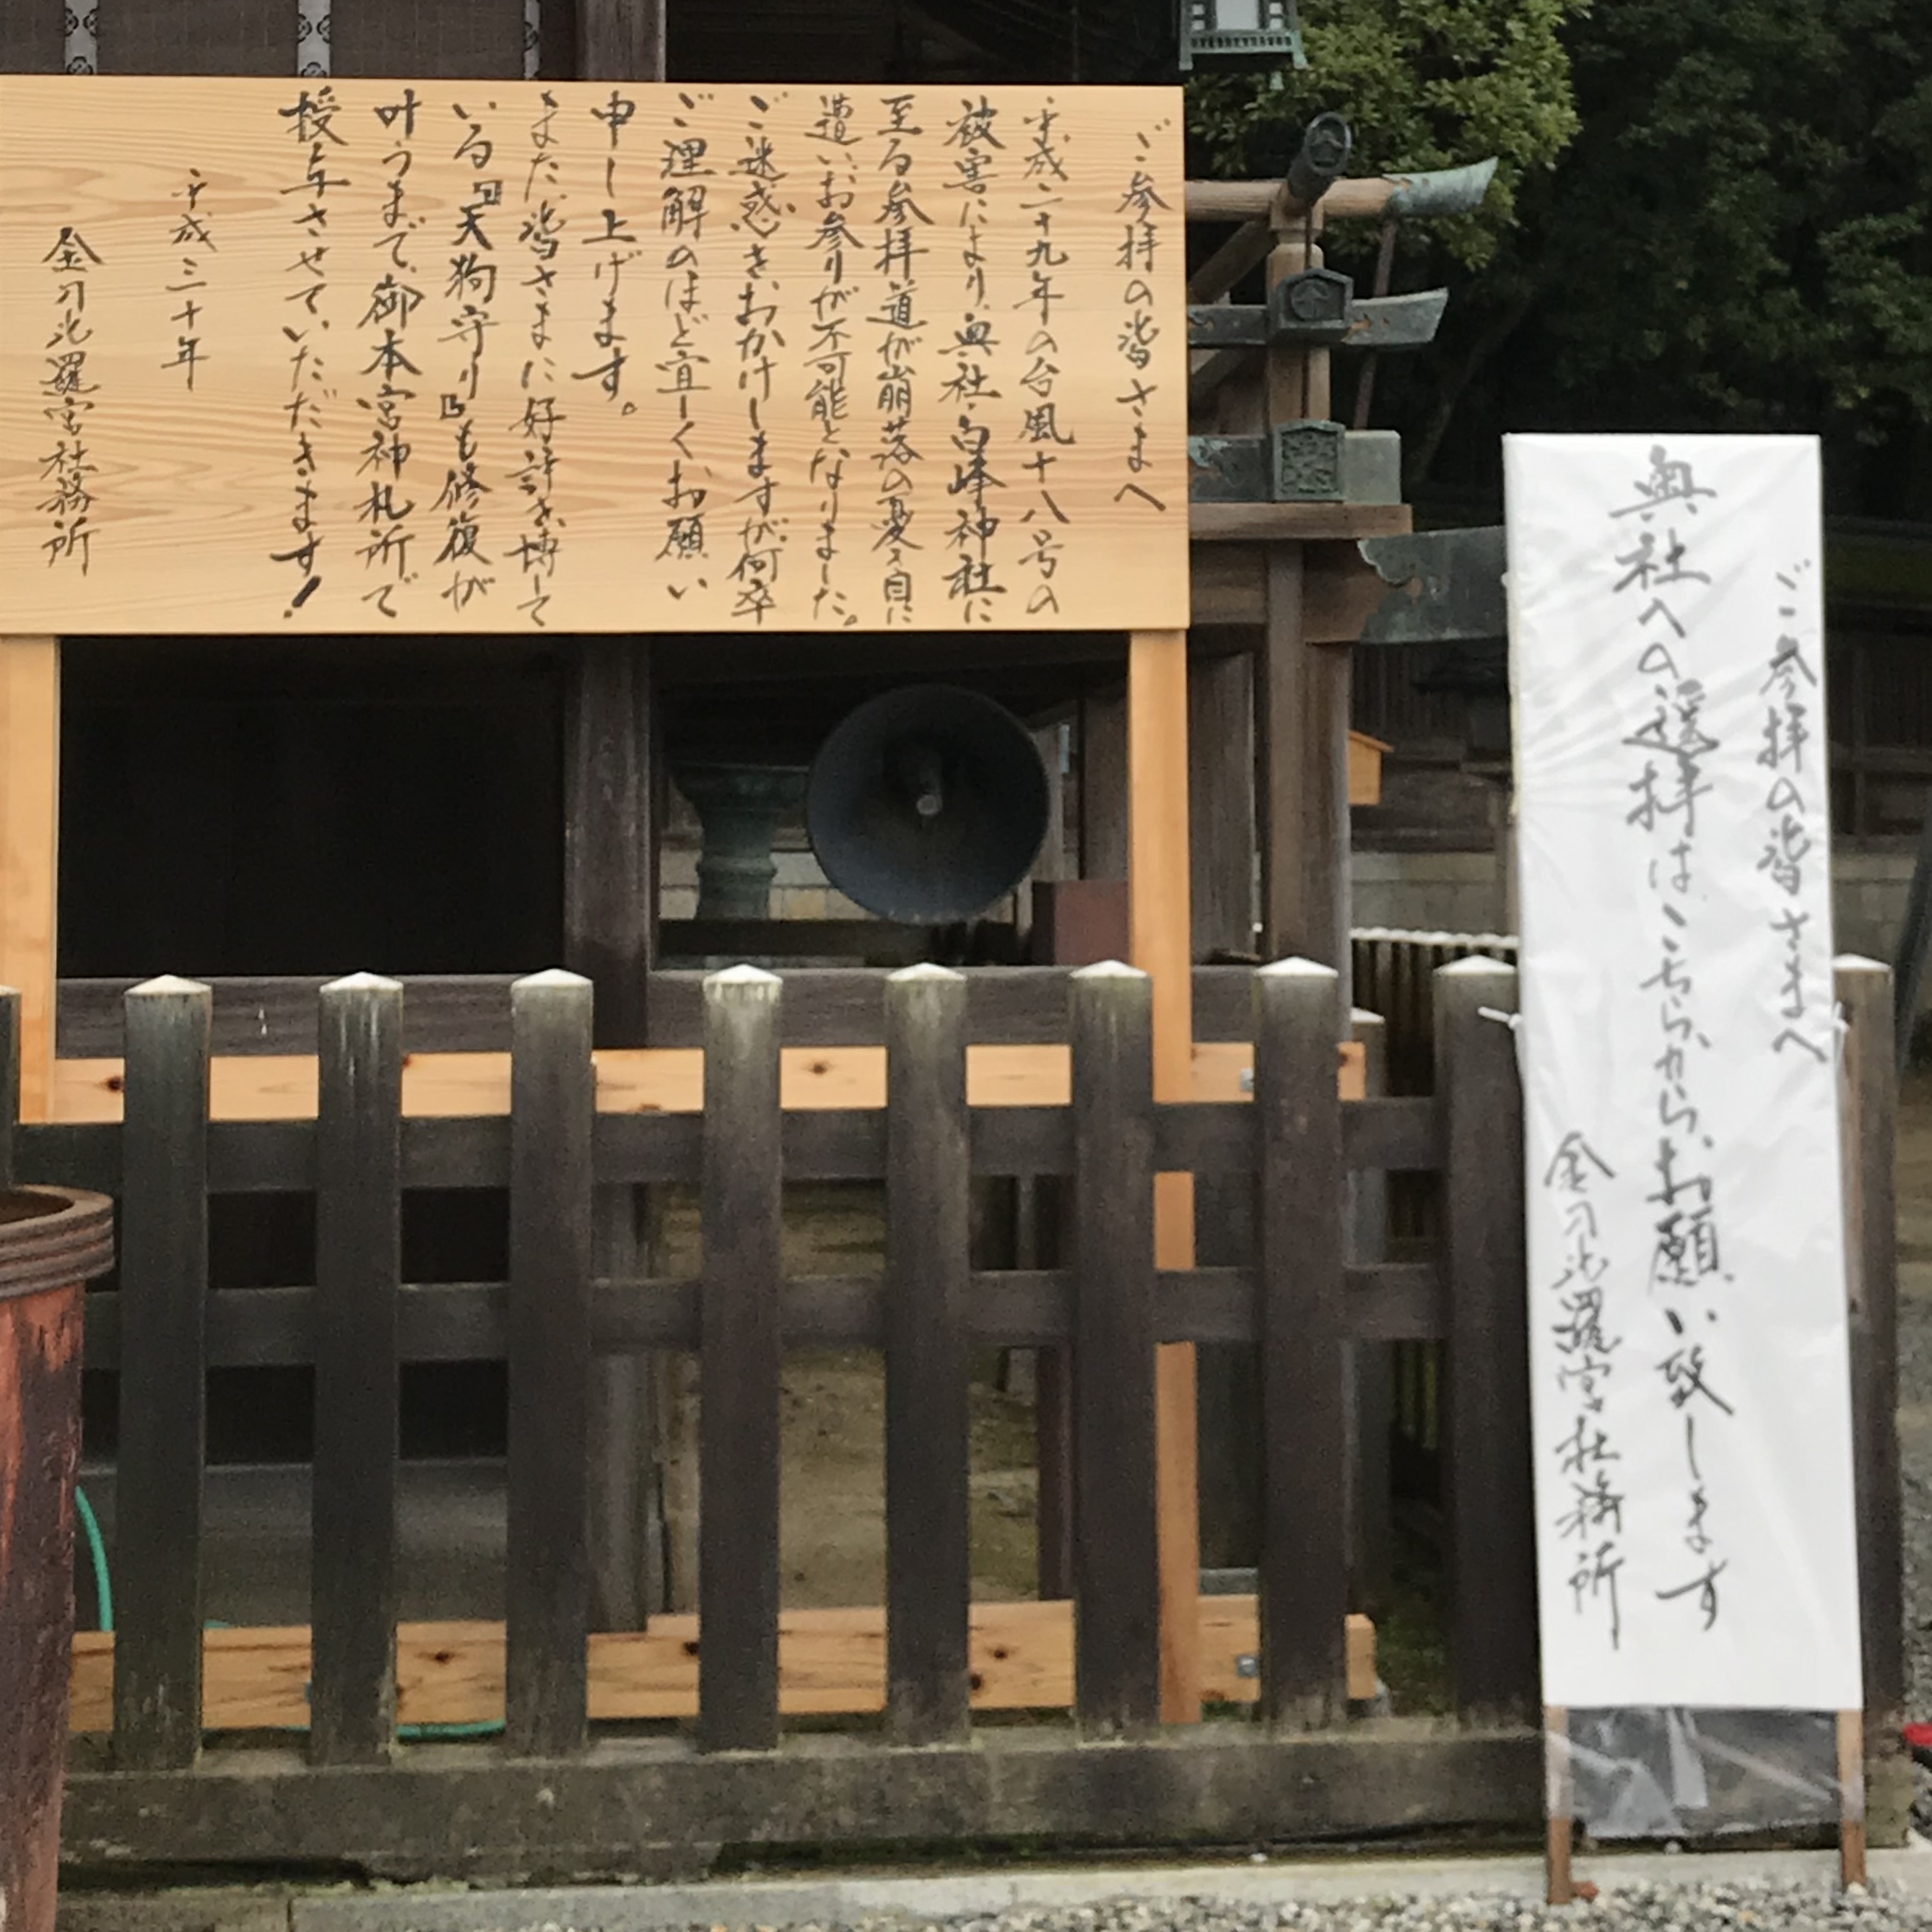 ご参拝の皆さまへ
平成二十九年の台風十八号の
被害により、奥社・白峰神社に
至る参拝道が崩落の憂き目に
遭い、お参りが不可能となりました。
ご迷惑をおかけしますが何卒
ご理解のほど宜しくお願い
申し上げます。
また、皆さまに好評を博して
いる『天狗守り』も修復が
叶うまで、御本宮神札所で
授与させていただきます！
平成三十年
金刀比羅宮社務所
ご参拝の皆さまへ
奥社への遥拝は、こちらから、お願い致します
金刀比羅宮社務所